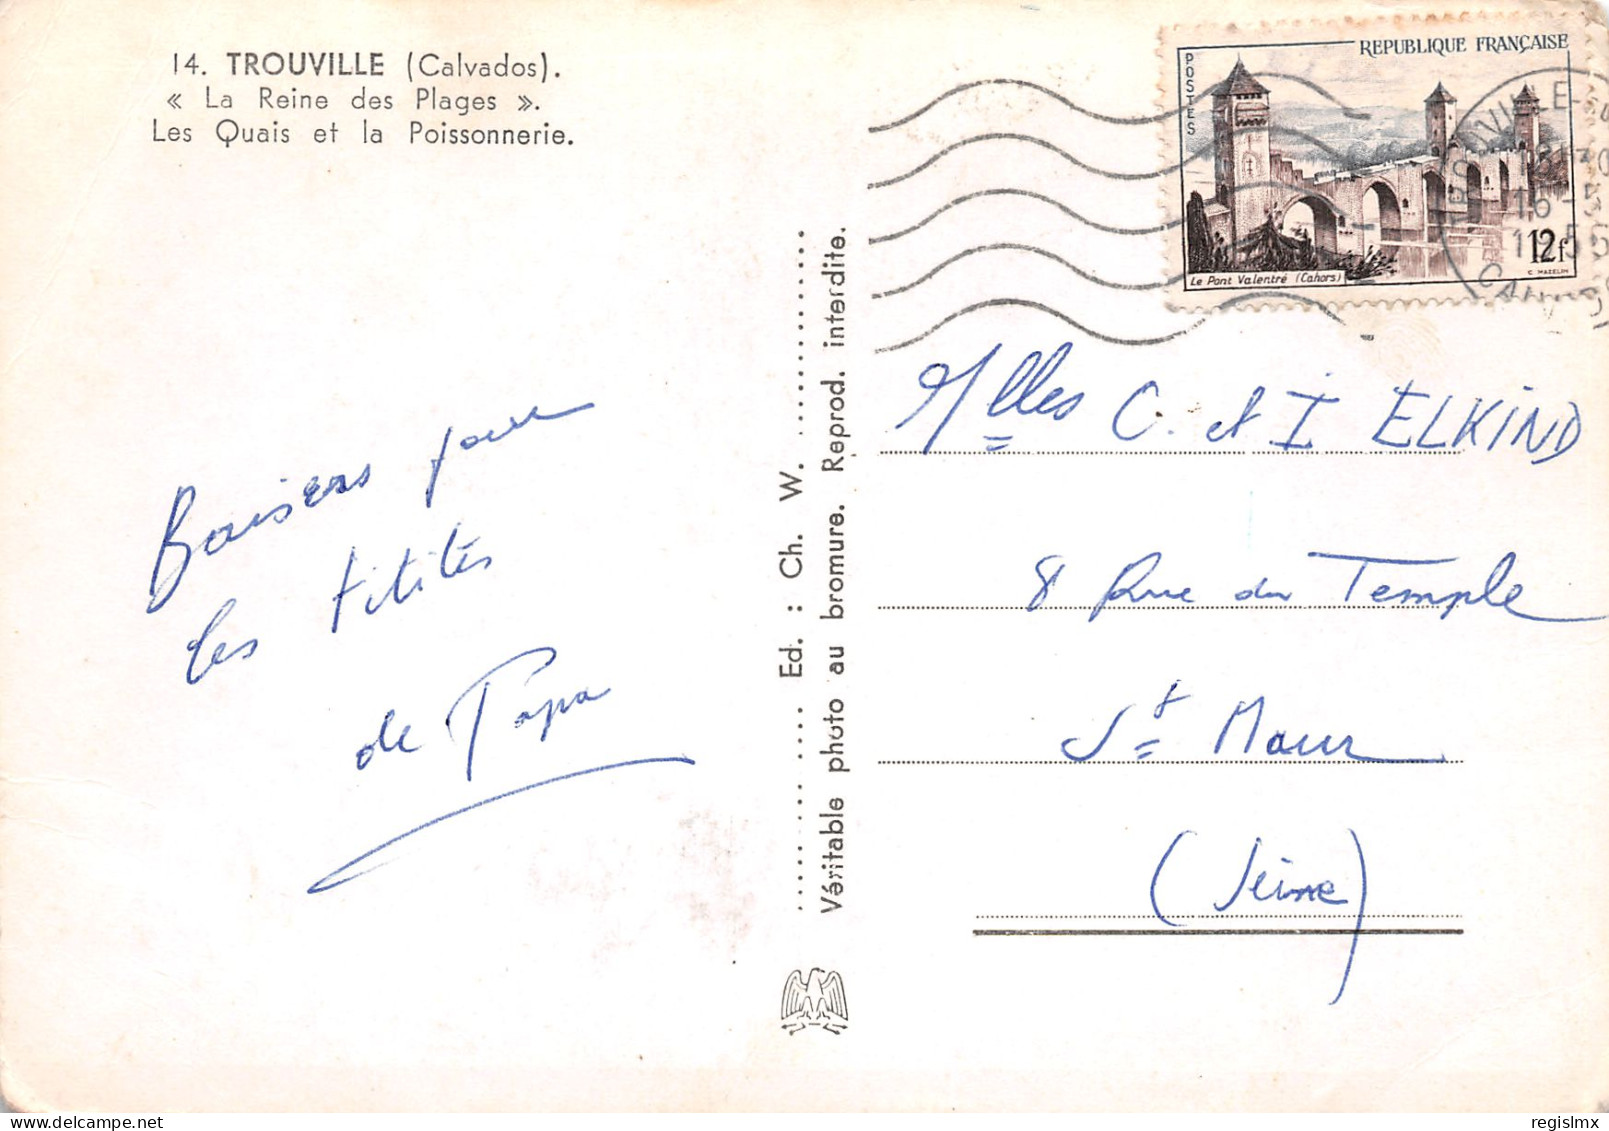 14. TROUVILLE (Calvados).
« La Reine des Plages ».
Les Quais et la Poissonnerie.
Baisers pour
les titites
de Papa
Ed. : Ch. W.
Véritable photo au bromure. Reprod. interdite.
POSTES
REPUBLIQUE FRANÇAISE
Le Pont Valentré (Cahors)
12f
C. MAZELIN
Mlles C. et I ELKIND
8 Rue du Temple
St Maur
(Seine)
regislmx
delcampe.net